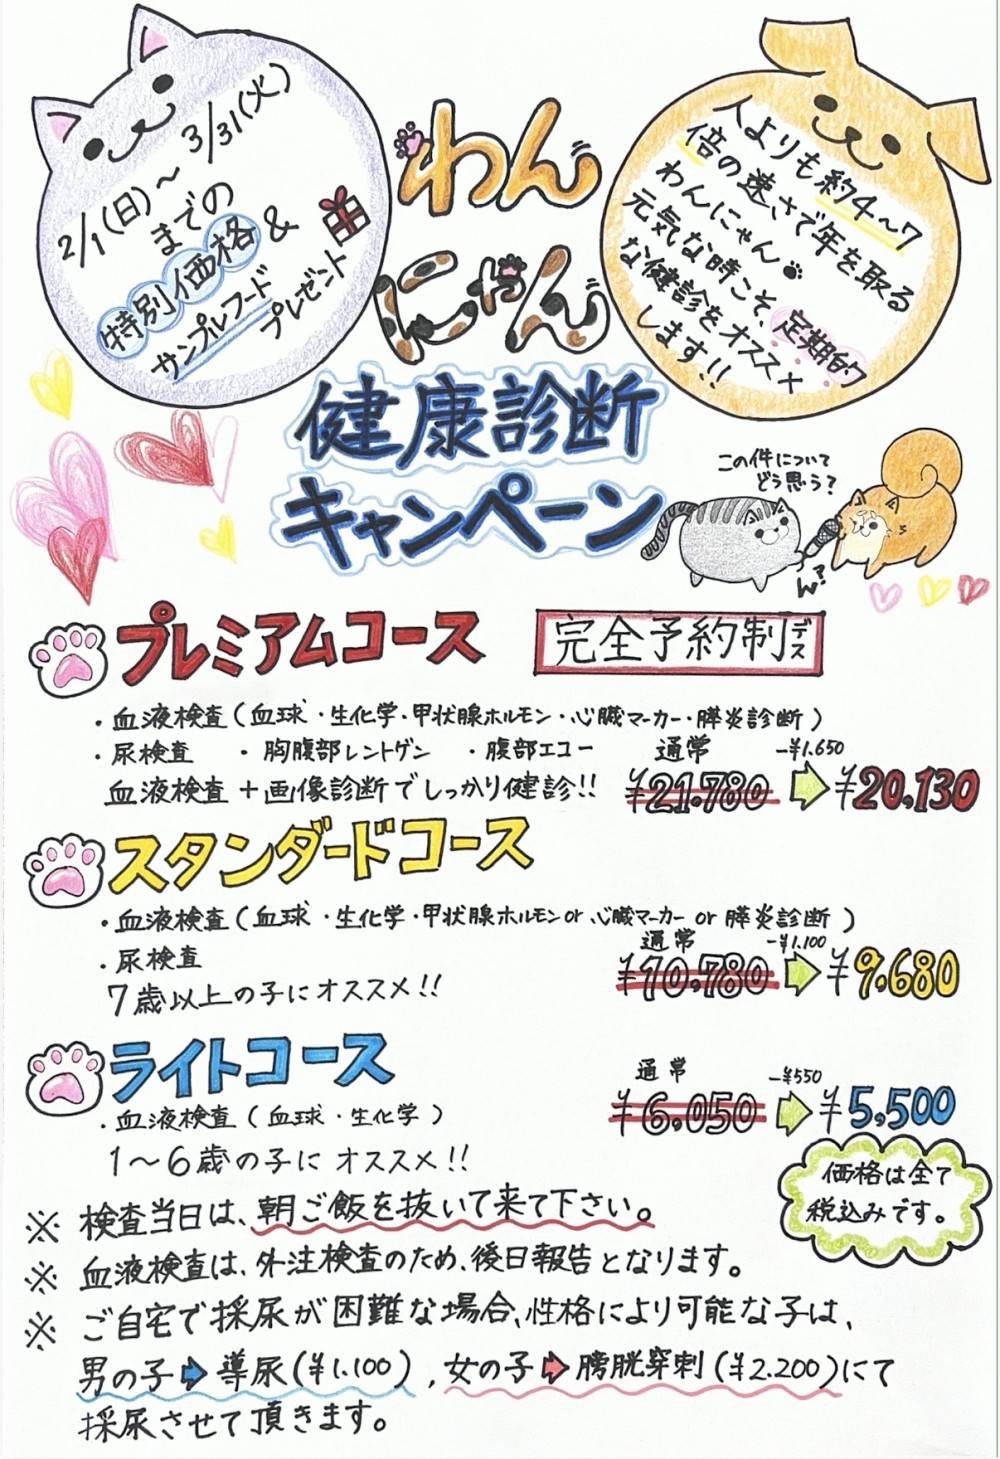 2/1(日)〜3/31(火)
までの
特別価格&
サンプルフード
プレゼント
わん
にゃん
健康診断
キャンペーン
人よりも約4〜7
倍の速さで年を取る
わんにゃん
元気な時こそ、定期的
な健診をオススメ
します!!
この件について
どう思う?
ん?
プレミアムコース
完全予約制デス
・血液検査(血球・生化学・甲状腺ホルモン・心臓マーカー・膵炎診断)
・尿検査 ・胸腹部レントゲン ・腹部エコー
血液検査+画像診断でしっかり健診!!
通常 -¥1.650
¥21.780 ¥20,130
スタンダードコース
・血液検査(血球・生化学・甲状腺ホルモン or 心臓マーカー or 膵炎診断)
・尿検査
7歳以上の子にオススメ!!
通常 -¥1.100
¥10,780 ¥9.680
ライトコース
・血液検査(血球・生化学)
1〜6歳の子にオススメ!!
通常 -¥550
¥6,050 ¥5,500
価格は全て
税込みです。
※ 検査当日は、朝ご飯を抜いて来て下さい。
※ 血液検査は、外注検査のため、後日報告となります。
※ ご自宅で採尿が困難な場合、性格により可能な子は、
男の子 導尿(¥1.100)、女の子 膀胱穿刺(¥2.200)にて
採尿させて頂きます。